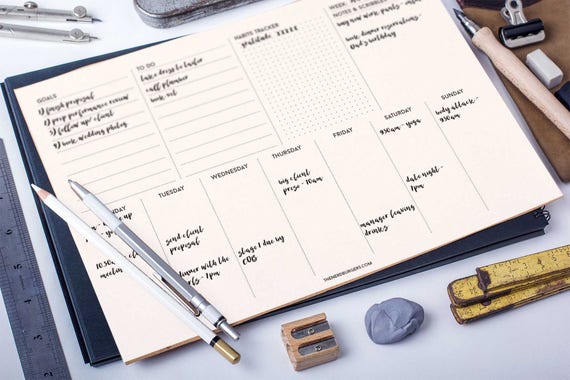 GOALS
1) finish proposal
2) prep performance review
3) follow up/ client
4) book wedding photog
TO DO
take dress to tailor
call plumber
book vet
HABITS TRACKER
gratitude xxxxx
WEEK:
NOTES & SCRIBBLES
buy new work pants
book dinner reservations/
Dad's birthday
TUESDAY
send client
proposal
dinner with the
- 7pm
WEDNESDAY
stage 1 due by
COB
THURSDAY
big client
preso - 10am
FRIDAY
manager leaving
drinks
SATURDAY
930am - yoga
date night -
7pm
SUNDAY
body attack -
930am
THENERDBURGERS.COM